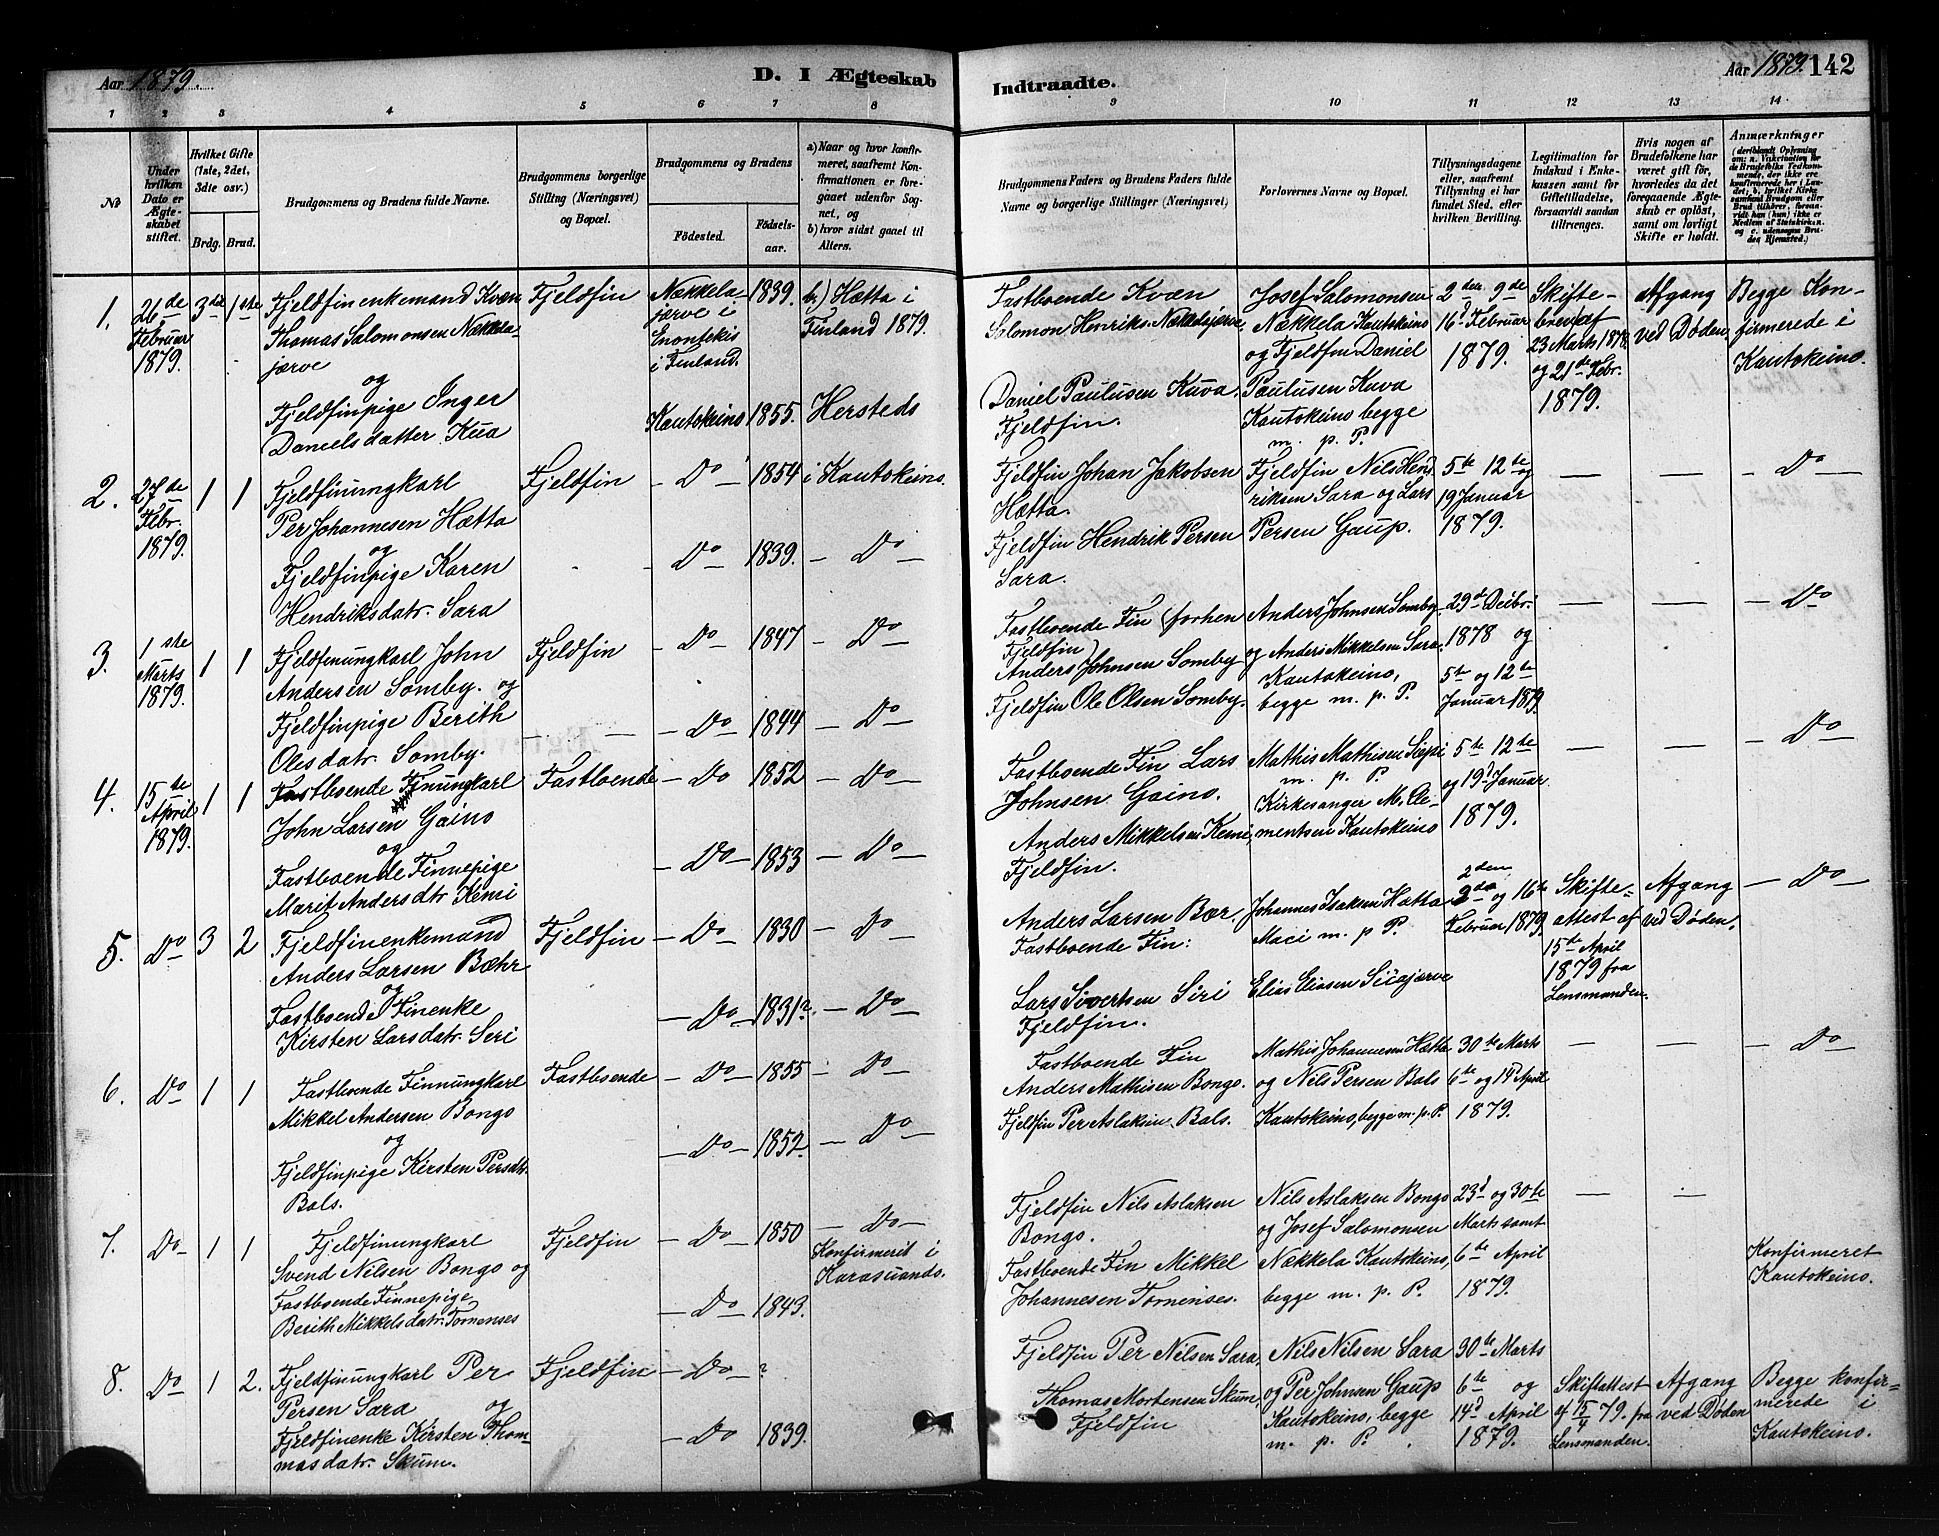 Aar 1879. D. I Ægteskab Indtraadte. Aar 1879. 142
1 2 3 4 5 6 7 8 9 10 11 12 13 14.
№
Under hvilken Dato er Ægteskabet stiftet.
Hvilket Gifte (1ste, 2det, 3die osv.)
Brdg. Brud.
Brudgommens og Brudens fulde Navne.
Brudgommens borgerlige Stilling (Næringsvei) og Bopæl.
Brudgommens og Brudens
Fødested. Fødselsaar.
a) Naar og hvor konfirmeret, saafremt Konfirmationen er foregaaet udenfor Sognet, og
b) hvor sidst gaaet til Alters.
Brudgommens Faders og Brudens Faders fulde Navne og borgerlige Stillinger (Næringsvei)
Forlovernes Navne og Bopæl.
Tillysningsdagene eller, saafremt Tillysning ei har fundet Sted, efter hvilken Bevilling.
Legitimation for Indskud i Enkekassen samt for Giftetilladelse, forsaavidt saadan tiltrænges.
Hvis nogen af Brudefolkene har været gift før, hvorledes da det foregaaende Ægteskab er opløst, samt om lovligt Skifte er holdt.
Anmærkninger (deriblandt Oplysning om: a. Vakcination for de Brudefolks Vedkommende, der ikke ere konfirmerede her i Landet; b. hvilket Kirkesamfund Brudgom eller Brud tilhører, forsaavidt han (hun) ikke er Medlem af Statskirken, og c. udensogns Brudes Hjemsted.)
1. 26de Februar 1879. 3die 1ste
Fjeldfinenkemand Kvæn
Thomas Salomonsen Nækkela-
jærve
og
Fjeldfinpige Inger
Danielsdatter Kua
Fjeldfin
Nækkela-
jærve i
Enontekis
i Finland.
1839.
b.) Hætta i
Finland 1879.
Kautokeino 1855. Hersteds
Fastboende Kvæn
Salomon Henriks. Nækkelajærve,
Daniel Paulusen Kuva.
Fjeldfin.
Josef Salomonsen
Nækkela Kautokeino
og Fjeldfin Daniel
Paulusen Kuva
Kautokeino begge
m. p. P.
2den 9de
16d Februar
1879.
Skifte-
brev af
23 Marts 1878
og 21de Febr.
1879.
Afgang
ved Døden.
Begge Kon-
firmerede i
Kautokeino.
2. 27de Febr. 1879. 1 1
Fjeldfinungkarl
Per Johannesen Hætta
og
Fjeldfinpige Karen
Hendriksdatr. Sara
Fjeldfin
— Do — 1854 i Kautokeino.
— Do — 1839. — Do —
Fjeldfin Johan Jakobsen
Hætta.
Fjeldfin Hendrik Persen
Sara.
Fjeldfin Nils Hend
riksen Sara og Lars
Persen Gaup.
5te 12te og
19 Januar
1879.
— — — Do
3. 1ste Marts 1879. 1 1
Fjeldfinungkarl John
Andersen Somby. og
Fjeldfinpige Berith
Olesdatr. Somby.
Fjeldfin
— Do — 1847 — Do —
— Do — 1844 — Do —
Fastboende Fin (forhen
Fjeldfin)
Anders Johnsen Somby
Fjeldfin Ole Olsen Somby.
Anders Johnsen Somby
og Anders Mikkelsen Sara
Kautokeino,
begge m. p. P.
29de Decbr.
1878 og
5te og 12te
Januar 1879.
— — — Do
4. 15te April 1879. 1 1
Fastboende Finungkarl
John Larsen Gaino
og
Fastboende Finnepige
Marit Andersdtr Kemi
Fastboende
— Do 1852 — Do —
— Do — 1853 — Do —
Fastboende Fin Lars
Johnsen Gaino.
Anders Mikkelsen Kemi,
Fjeldfin.
Mathis Mathisen
m. p. P.
Kirkesanger M. Cle-
mentsen Kautokeino
5te 12te
og 19d Januar
1879.
— — — Do —
5. Do 3 2
Fjeldfinenkemand
Anders Larsen Bæhr
og
Fastboende Finenke
Kirsten Larsdatr. Seri
Fjeldfin
— Do — 1830 — Do —
— Do — 1831? — Do —
Anders Larsen Bær.
Fastboende Fin:
Lars Sivertsen Siri
Fjeldfin.
Johannes Isaksen Hætta
Maci m. p P.
Elias Eliasen Sicajærve
2den
og 16te
Februar 1879.
Skifte-
attest af
15te April
1879 fra
Lensmanden.
Afgang
ved Døden.
— Do —
6. Do 1 1
Fastboende Finnungkarl
Mikkel Andersen Bongo
og
Fjeldfinpige Kirsten Persdtr.
Bals.
Fastboende
— Do — 1855 — Do —
— Do — 1852. — Do —
Fastboende Fin
Anders Mathisen Bongo.
Fjeldfin Per Aslaksen Bals.
Mathis Johannesen Hætta
og Nils Persen Bals
Kautokeino, begge m. p. P.
30te Marts
6te og 14d April
1879.
— — — Do —
7. Do 1 1
Fjeldfinungkarl
Svend Nilsen Bongo og
Fastboende Finnepige
Berith Mikkelsdatr. Tornenses
Fjeldfin
— Do — 1850 — Do —
Konfirmerit i
Karasuando.
— Do — 1843.
Fjeldfin Nils Aslaksen
Bongo.
Fastboende Fin Mikkel
Johannesen Tornenses.
Nils Aslaksen Bongo
og Josef Salomonsen
Nækkela Kautokeino,
begge m. p. P.
23d og 30te
Marts samt
6te April
1879.
— —
Konfirmeret
Kautokeino.
8. Do 1 2.
Fjeldfinungkarl Per
Persen Sara og
Fjeldfinenke Kirsten Thom-
masdatr. Skum.
Fjeldfin
— Do — ?
— Do 1839.
Fjeldfin Per Nilsen Sara,
Thomas Mortensen Skum,
Fjeldfin
Nils Nilsen Sara
og Per Johnsen Gaup
Kautokeino, begge
m. p. P.
30te Marts
6te og
14d April
1879.
Skiftattest
af 15/4 79. fra
Lensmanden.
Afgang
ved Døden
Begge konfir-
merede i
Kautokeino.